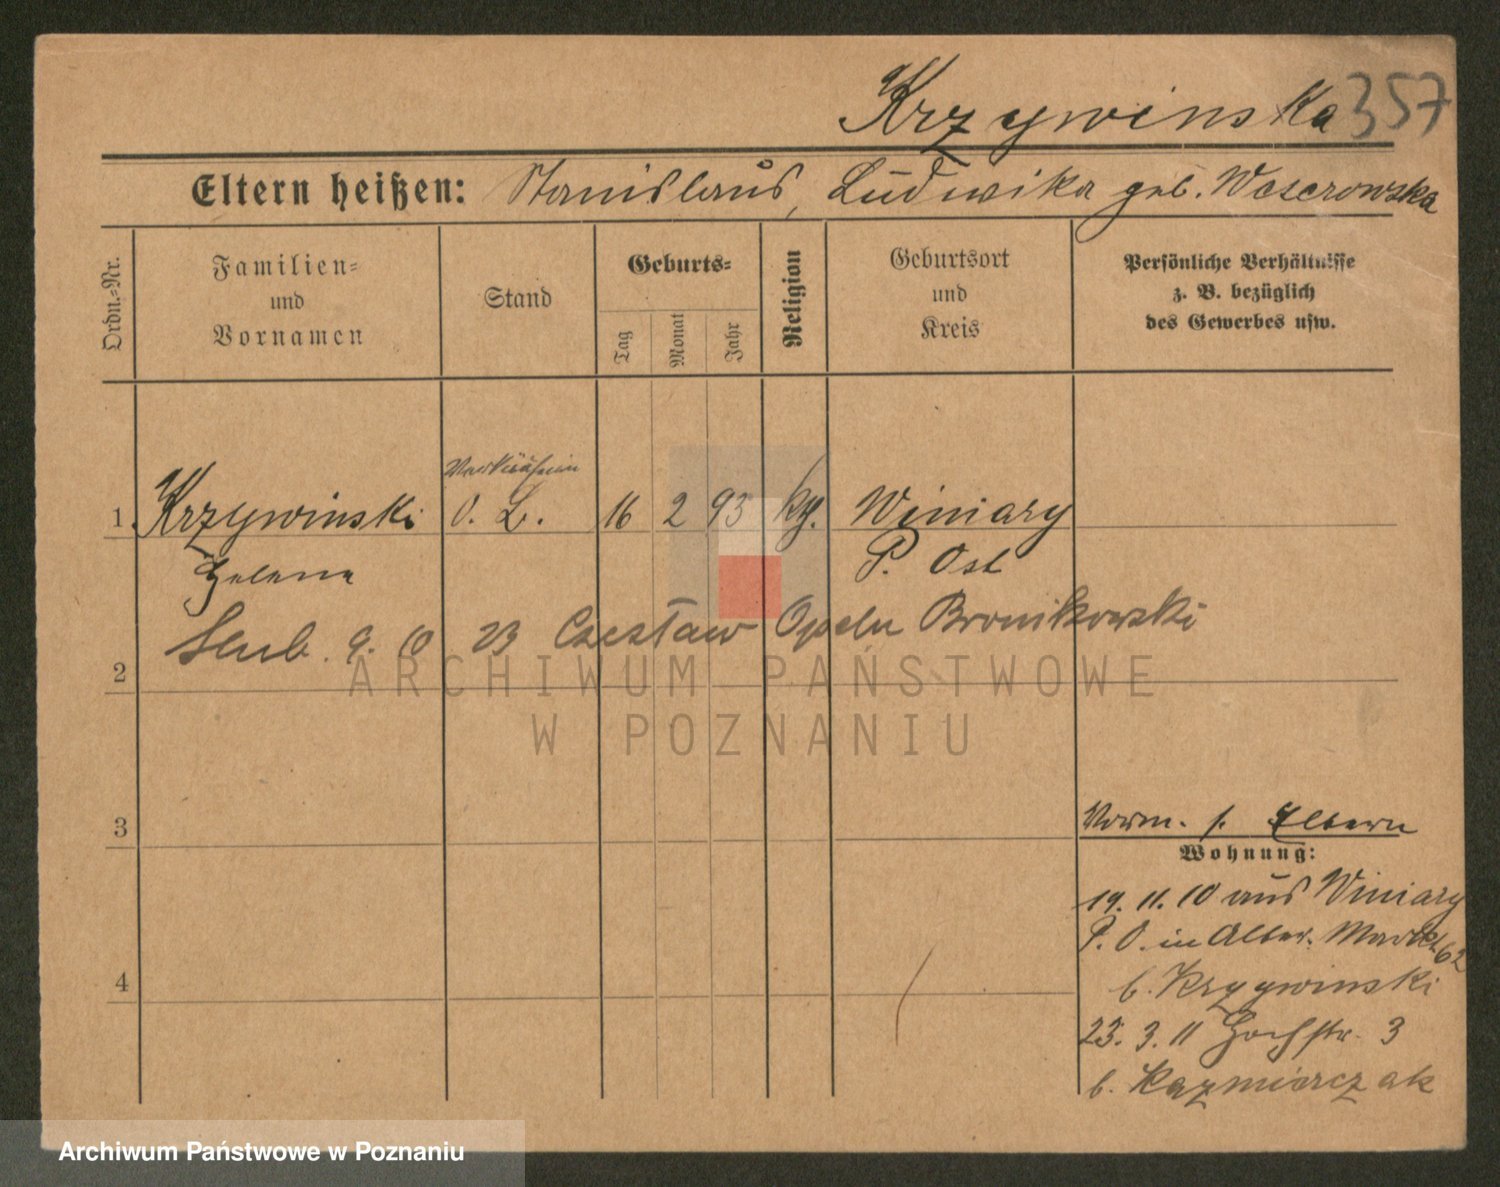 Krzywinska 357
Eltern heißen: Stanislaus, Ludwika geb. Weserowska
Ordn.-Nr.
Familien-
und
Vornamen
Stand
Geburts-
Tag
Monat
Jahr
Religion
Geburtsort
und
Kreis
Persönliche Verhältnisse
z. B. bezüglich
des Gewerbes usw.
Verkäuferin
1. Krzywinski O. L. 16 2 93 kg. Winiary
Helene P. Ost
Slub. 9. 10 23 Czesław Opeln Bronikowski
2
ARCHIWUM PAŃSTWOWE
W POZNANIU
3
Vorm. s. Eltern
Wohnung:
19. 11. 10 aus Winiary
P. O. in Alter. Markt 62
b. Krzywinski
4
23. 3. 11 Hochstr. 3
b. Kazmierczak
Archiwum Państwowe w Poznaniu